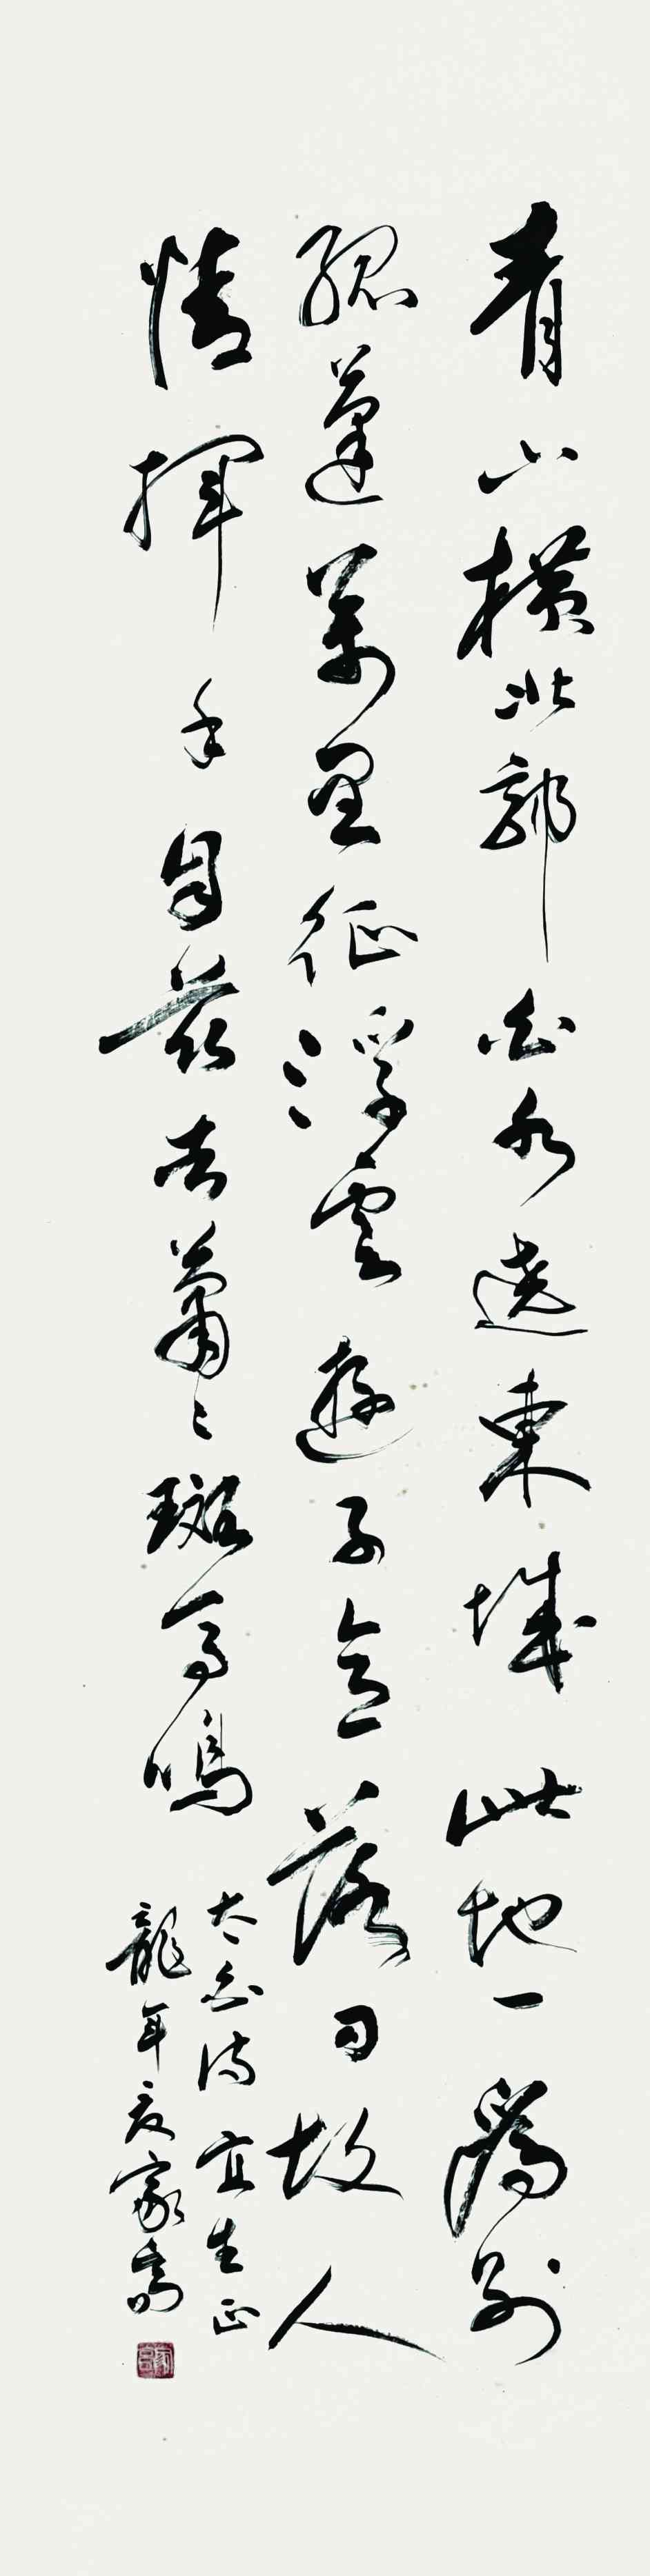 青山横北郭白水遶東城此地一為別
孤蓬萬里征浮雲遊子意落日故人
情揮手自茲去蕭〻斑馬鳴
太白詩 宜生正
龍年 家